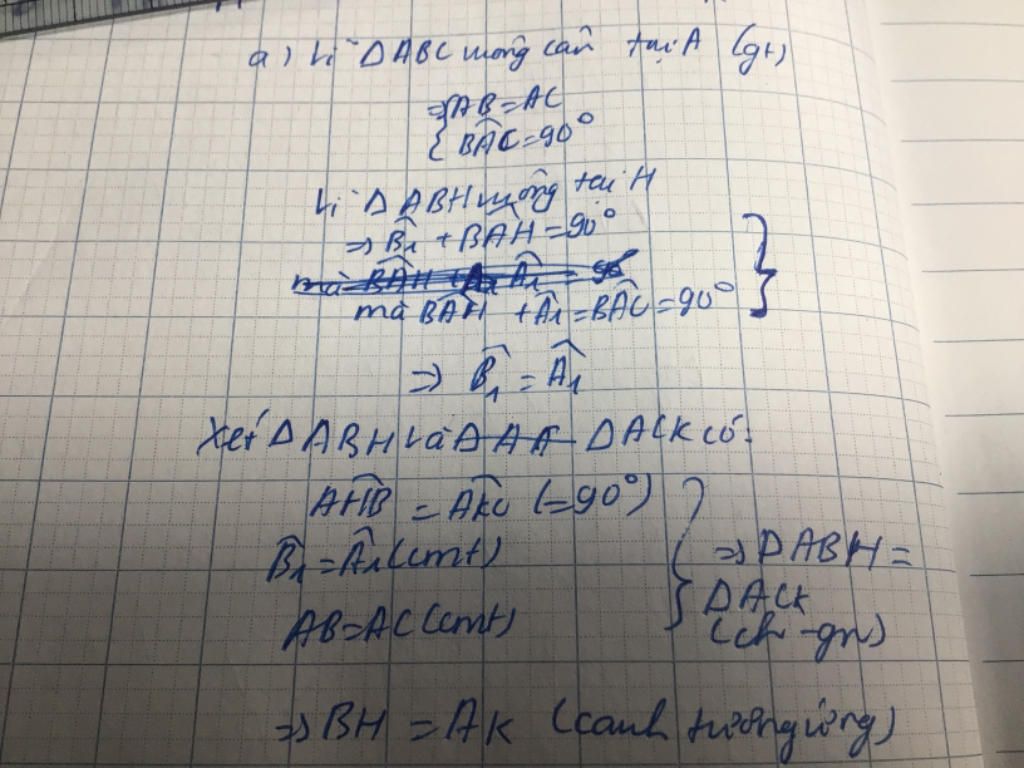 a) Vì ΔABC vuông cân tại A (gt)
=> { AB = AC
{ BAC = 90°
Vì ΔABH vuông tại H
=> B₁ + BAH = 90°
mà BAH + A₁ = BAC = 90°
=> B₁ = A₁
Xét ΔABH và ΔACK có:
AHB = AKC (=90°)
B₁ = A₁ (cmt)
AB = AC (cmt)
=> ΔABH =
ΔACK
(ch - gn)
=> BH = AK (cạnh tương ứng)